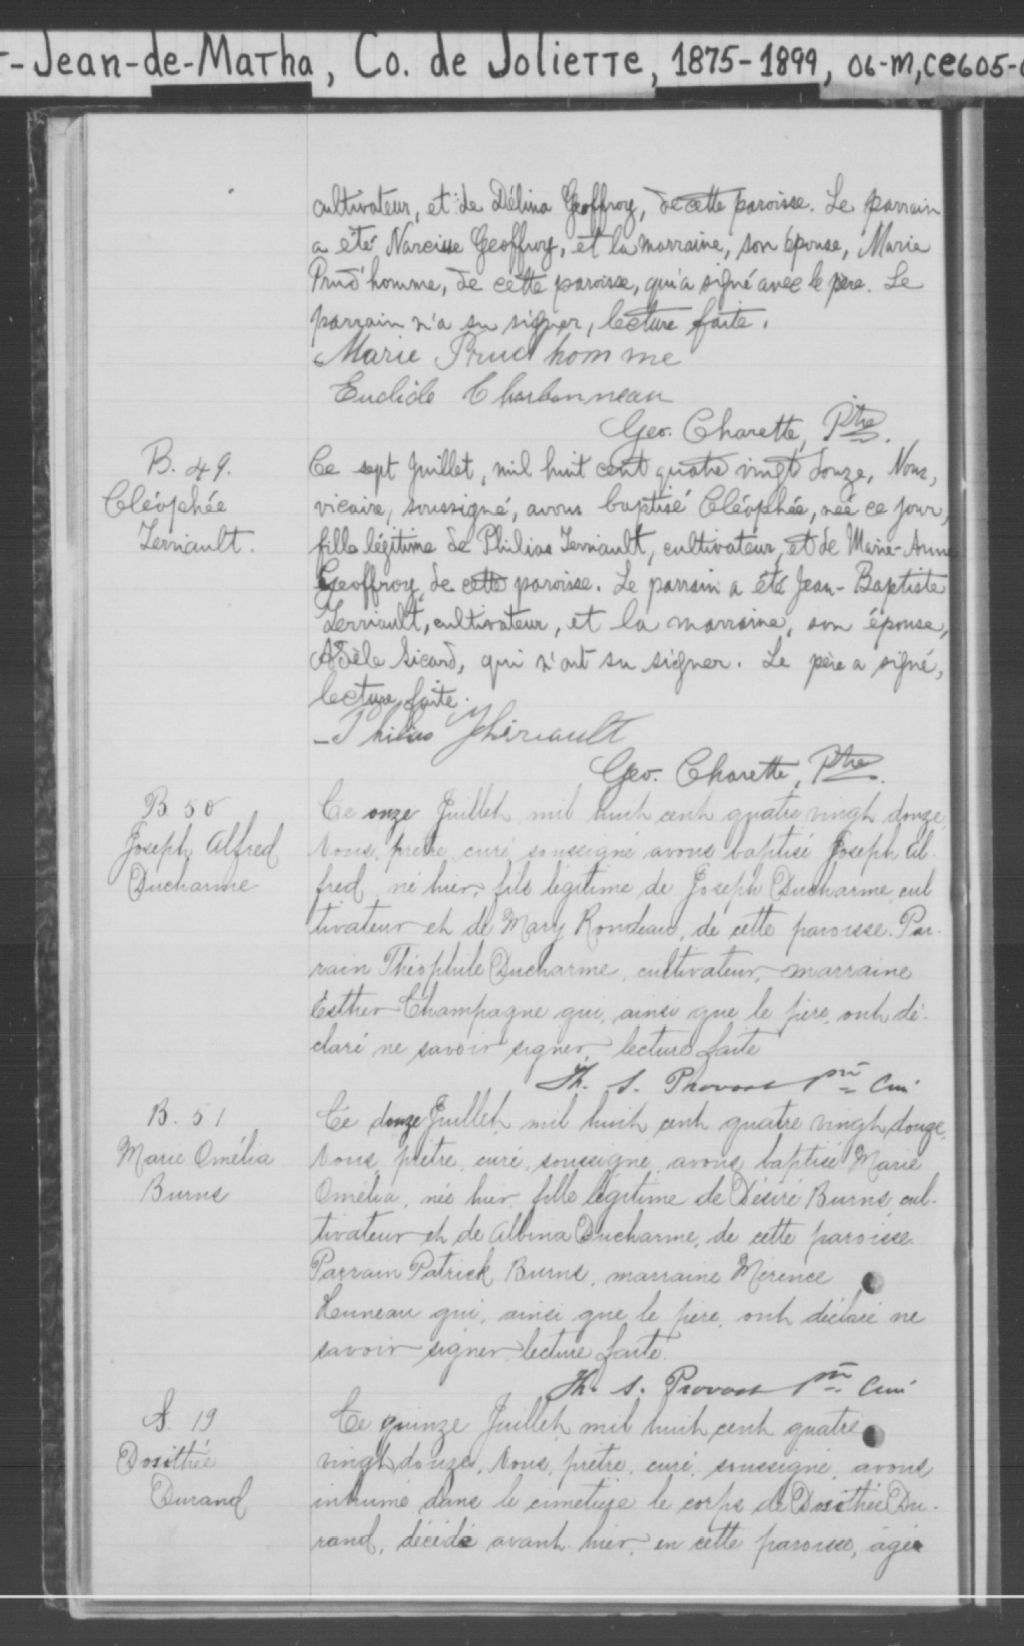 -Jean-de-Matha, Co. de Joliette, 1875-1899, 06-M,CE605-
cultivateur, et de Délina Geoffroy, de cette paroisse. Le parrain
a été Narcisse Geoffroy, et la marraine, son épouse, Marie
Prud'homme, de cette paroisse, qui a signé avec le père. Le
parrain n'a su signer, lecture faite.
Marie Prud homme
Euclide Charbonneau
Geo. Charette, Ptre.
B. 49.
Cléophée
Terriault.
Ce sept Juillet, mil huit cent quatre vingt douze, Nous,
vicaire, soussigné, avons baptisé Cléophée, née ce jour,
fille légitime de Philias Terriault, cultivateur, et de Marie-Anne
Geoffroy, de cette paroisse. Le parrain a été Jean-Baptiste
Terriault, cultivateur, et la marraine, son épouse,
Adèle Sicard, qui n'ont su signer. Le père a signé,
lecture faite.
Philias Thériault
Geo. Charette, Ptre.
B. 50
Joseph Alfred
Ducharme
Ce onze Juillet mil huit cent quatre vingt douze,
Nous, prêtre, curé soussigné avons baptisé Joseph Al-
fred, né hier, fils légitime de Joseph Ducharme, cul
tivateur et de Mary Rondeau, de cette paroisse. Par-
rain Théophile Ducharme, cultivateur, marraine
Esther Champagne qui, ainsi que le père, ont dé-
claré ne savoir signer, lecture faite
Th. S. Provost ptre curé
B. 51
Marie Omélia
Burns
Ce douze Juillet mil huit cent quatre vingt douze,
Nous, prêtre, curé, soussigné, avons baptisé Marie
Omélia, née hier, fille légitime de Désiré Burns, cul-
tivateur et de Albina Ducharme, de cette paroisse.
Parrain Patrick Burns, marraine Mérence
Heuneau qui, ainsi que le père, ont déclaré ne
savoir signer, lecture faite.
Th. S. Provost ptre curé
S. 19
Dosithée
Durand
Ce quinze Juillet mil huit cent quatre
vingt douze, Nous, prêtre, curé, soussigné, avons
inhumé dans le cimetière le corps de Dosithée Du-
rand, décédé avant hier, en cette paroisse, âgée